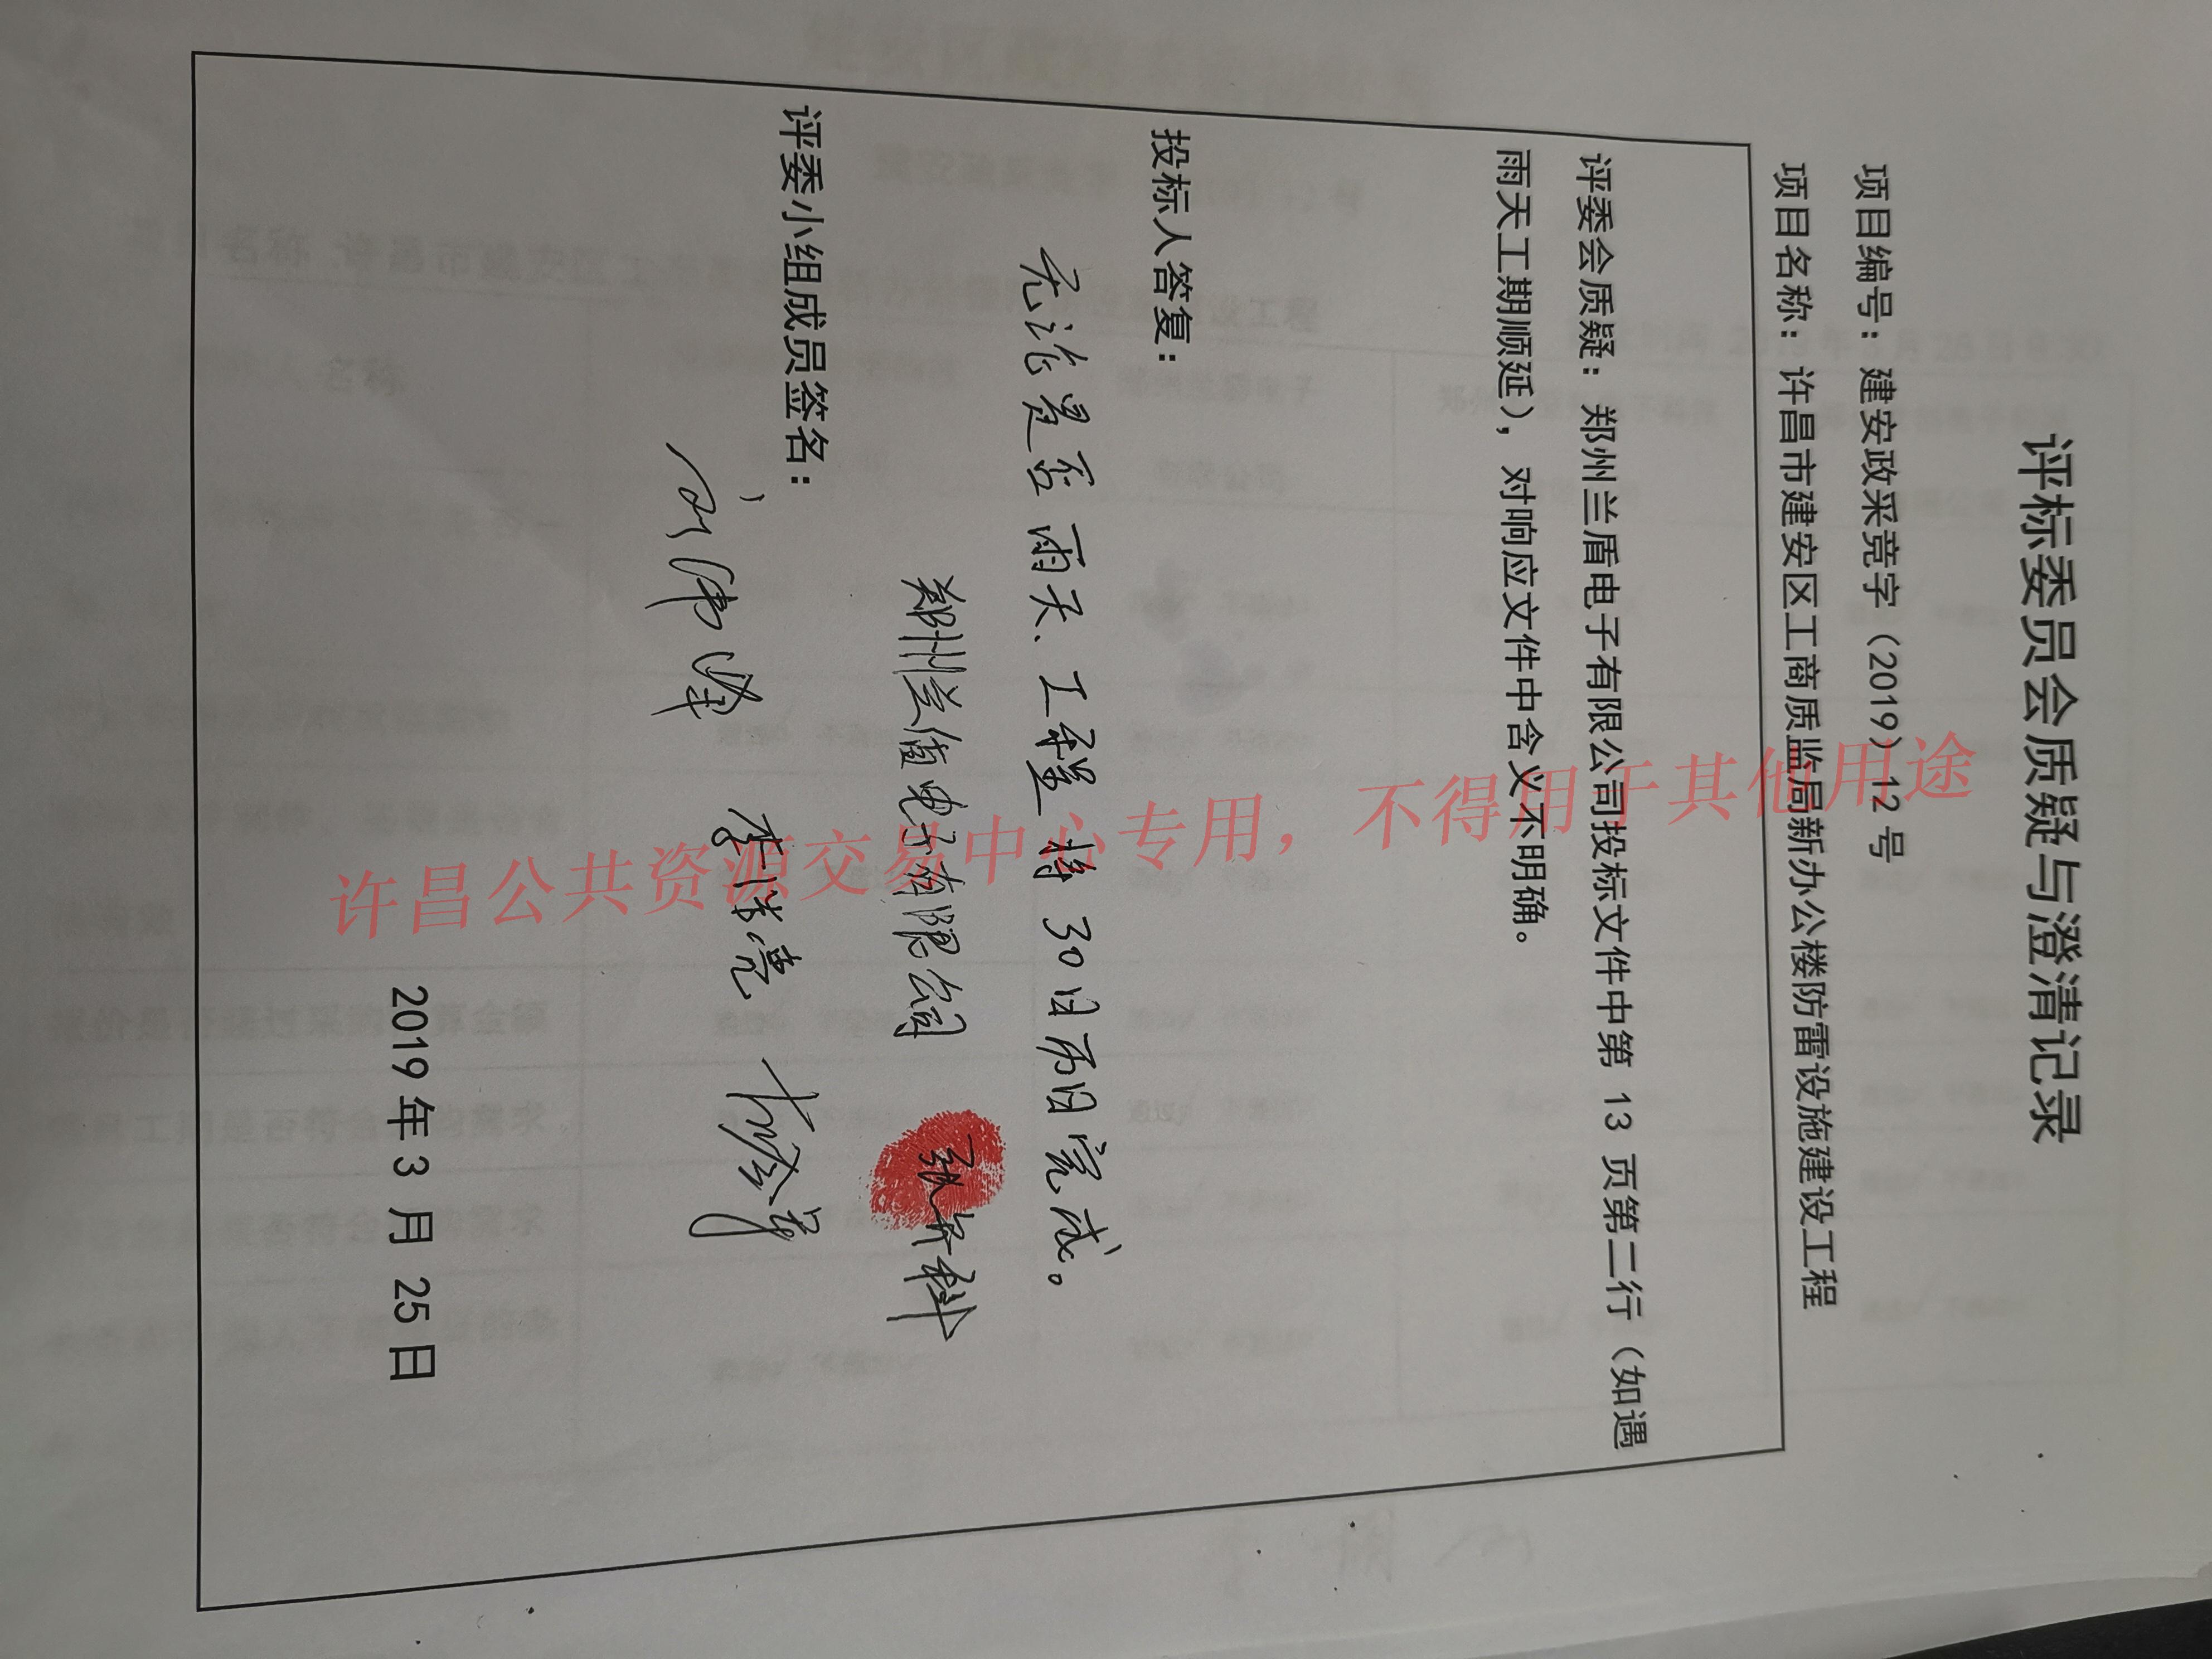 评标委员会质疑与澄清记录
项目编号：建安政采竞字（2019）12号
项目名称：许昌市建安区工商质监局新办公楼防雷设施建设工程
评委会质疑：郑州兰盾电子有限公司投标文件中第 13 页第二行（如遇
雨天工期顺延），对响应文件中含义不明确。
投标人答复：
无论是否雨天、工程将30日历日完成。
郑州兰盾电子有限公司
评委小组成员签名：
2019年3月25日
许昌公共资源交易中心专用，不得用于其他用途